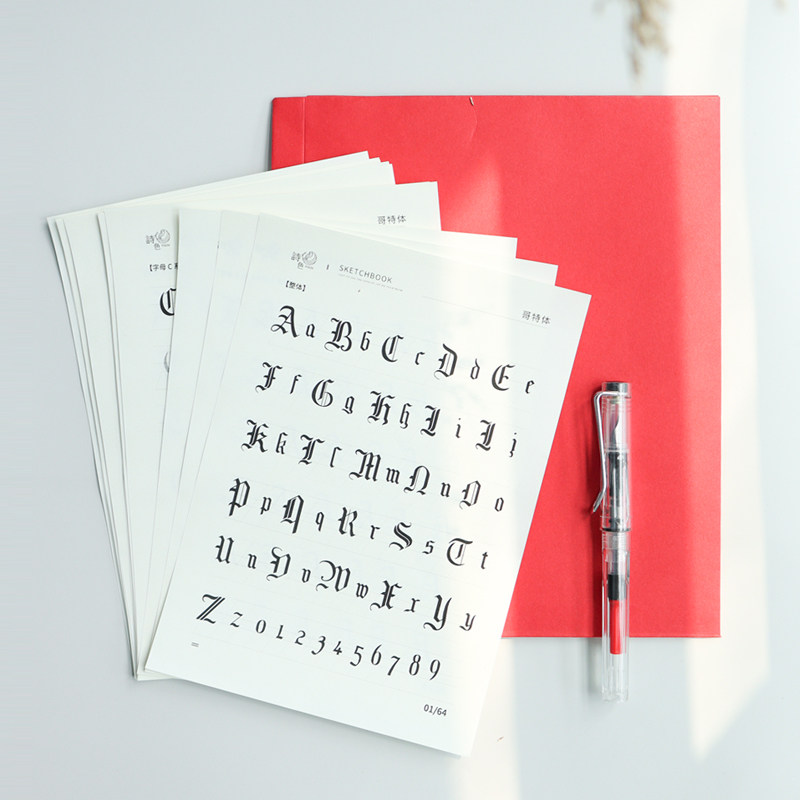 哥特体
詩色
【字母 C 系
C
詩色 SKETCHBOOK
【整体】
哥特体
A a B b C c D d E e
F f G g H h I i J j
K k L l M m N n O o
P p Q q R r S s T t
U u V v W w X x Y y
Z z 0 1 2 3 4 5 6 7 8 9
01/64